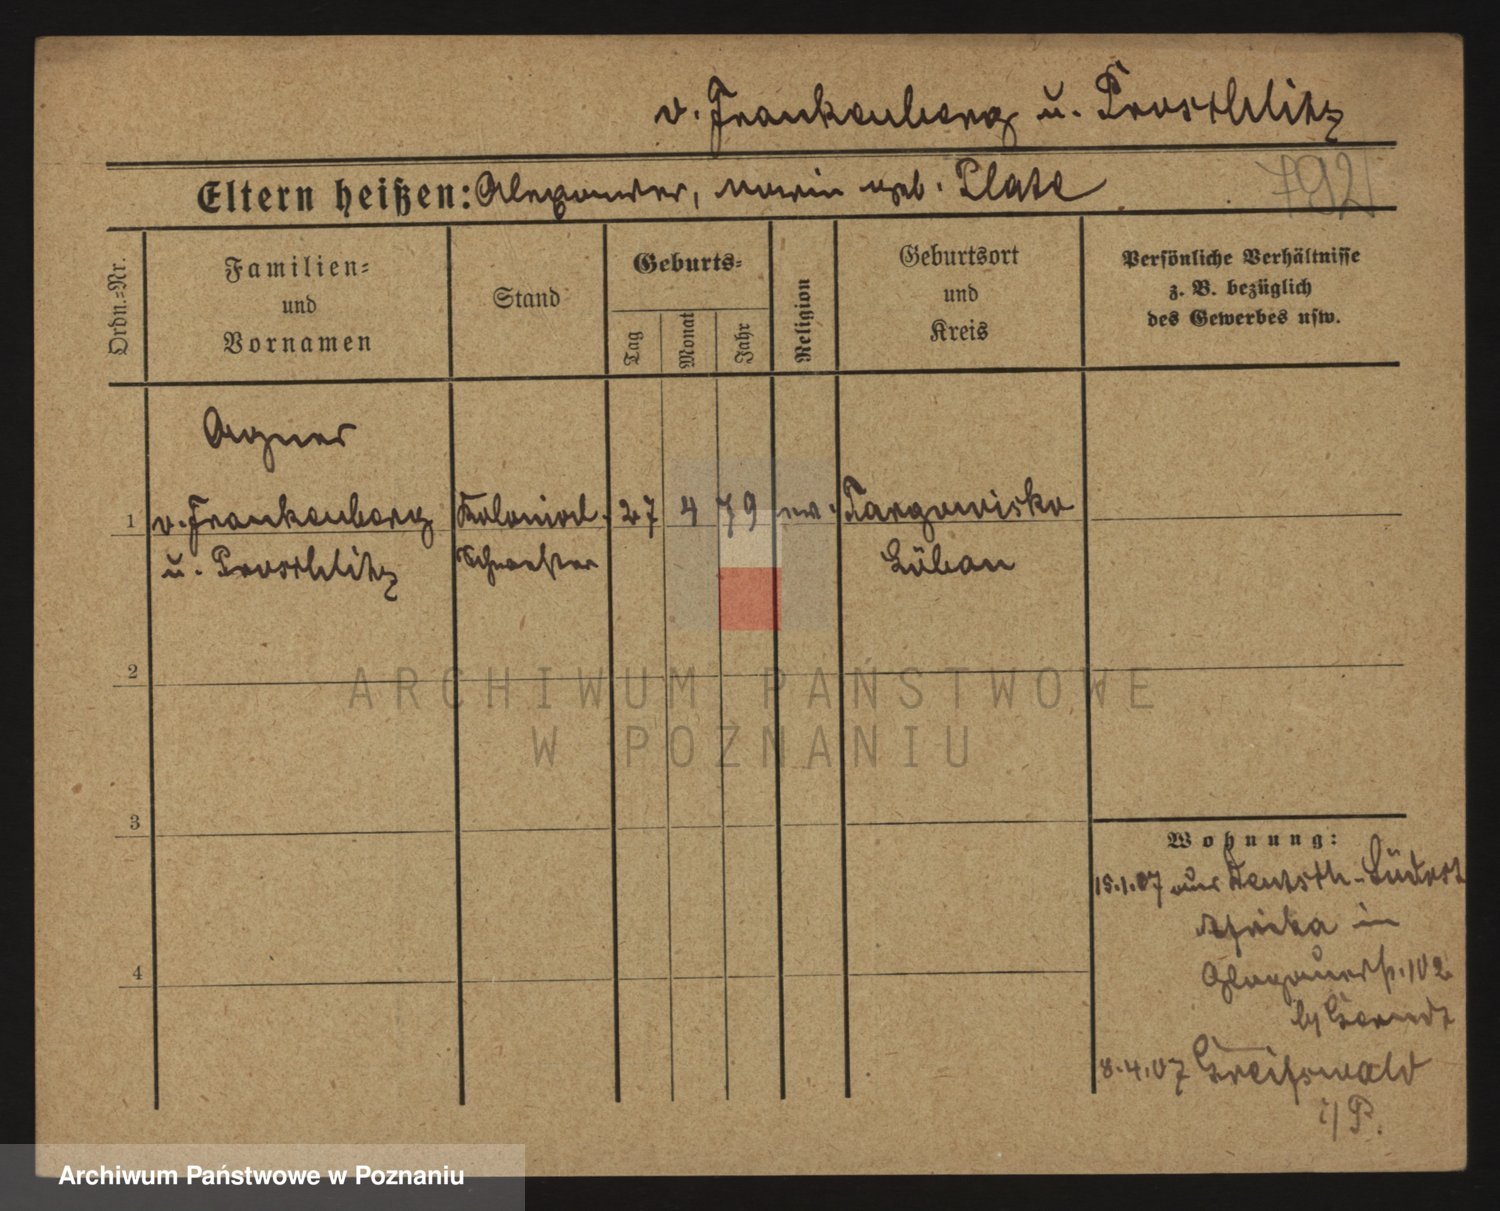 v. Frankenberg u. Proschlitz
Eltern heißen: Alexander, Marie geb. Plate
792
Ordn.=Nr.
Familien=
und
Vornamen
Stand
Geburts=
Tag
Monat
Jahr
Religion
Geburtsort
und
Kreis
Persönliche Verhältnisse
z. B. bezüglich
des Gewerbes usw.
Agnes
1 v. Frankenberg Kolonial- 27 4 79 ev. Targowisko
u. Proschlitz Schwester Löbau
2
3
4
Wohnung:
15.1.07 aus Deutsch-Südwest
Afrika in
Glogauerstr. 102
b/ Berndt
8.4.07 Greifswald
i/P.
ARCHIWUM PAŃSTWOWE
W POZNANIU
Archiwum Państwowe w Poznaniu